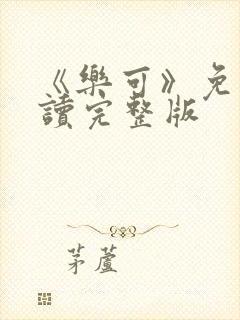 《樂可》免
讀完整版
茅蘆